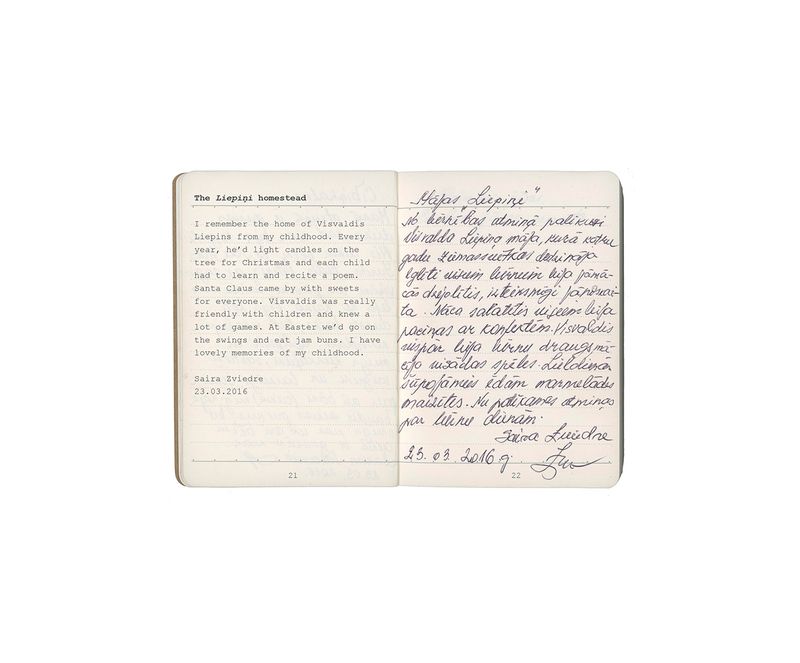 The Liepiņi homestead
I remember the home of Visvaldis
Liepins from my childhood. Every
year, he'd light candles on the
tree for Christmas and each child
had to learn and recite a poem.
Santa Claus came by with sweets
for everyone. Visvaldis was really
friendly with children and knew a
lot of games. At Easter we'd go on
the swings and eat jam buns. I have
lovely memories of my childhood.
Saira Zviedre
23.03.2016
21
Mājas "Liepiņi"
No bērnības atmiņā palikusi
Visvalda Liepiņa māja, kurā katru
gadu Ziemassvētkos dedzināja
eglīti visiem bērniem bija jāmā-
cās dzejolītis, izteiksmīgi jānoskai-
ta. Nāca salatētis visiem bija
paciņas ar konfektēm. Visvaldis
vispār bija bērnu draugs, mā-
cēja visādas spēles. Lieldienās
šūpojāmies ēdām marmelādes
maizītes. Nu patīkamas atmiņas
par bērnu dienām.
Saira Zviedre
23. 03. 2016.g.
22